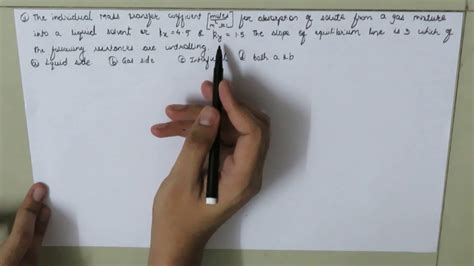 The individual mass transfer coefficient [moles/m² sec] for absorption of solute from a gas mixture
into a liquid solvent are kx = 4.5 & ky = 1.5 The slope of equilibrium line is 3 which of
the following resistances are controlling.
a) Liquid side b) Gas side c) d) both a & b